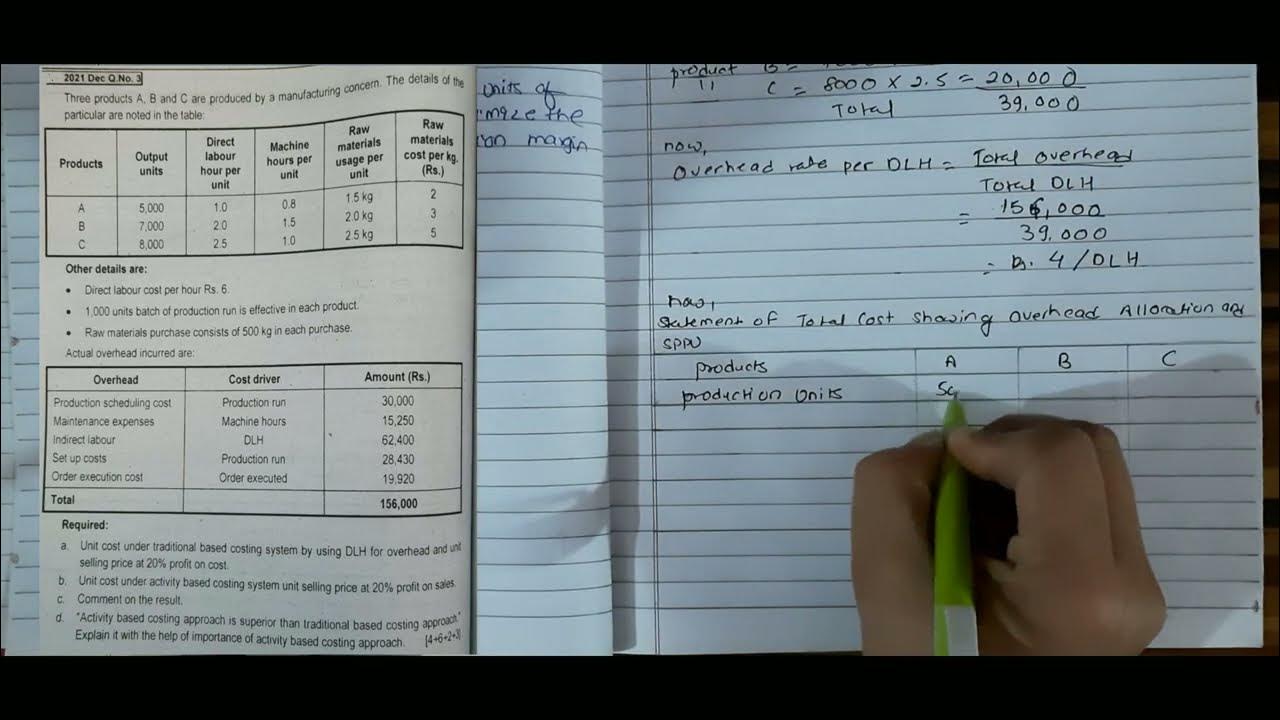 2021 Dec Q.No. 3
Three products A, B and C are produced by a manufacturing concern. The details of the
particular are noted in the table:
Products | Output units | Direct labour hour per unit | Machine hours per unit | Raw materials usage per unit | Raw materials cost per kg. (Rs.)
A 5,000 1.0 0.8 1.5 kg 2
B 7,000 2.0 1.5 2.0 kg 3
C 8,000 2.5 1.0 2.5 kg 5
Other details are:
• Direct labour cost per hour Rs. 6.
• 1,000 units batch of production run is effective in each product.
• Raw materials purchase consists of 500 kg in each purchase.
Actual overhead incurred are:
Overhead | Cost driver | Amount (Rs.)
Production scheduling cost Production run 30,000
Maintenance expenses Machine hours 15,250
Indirect labour DLH 62,400
Set up costs Production run 28,430
Order execution cost Order executed 19,920
Total 156,000
Required:
a. Unit cost under traditional based costing system by using DLH for overhead and unit
selling price at 20% profit on cost.
b. Unit cost under activity based costing system unit selling price at 20% profit on sales.
c. Comment on the result.
d. "Activity based costing approach is superior than traditional based costing approach."
Explain it with the help of importance of activity based costing approach. [4+6+2+3]
units of
the
margin
product B =
C = 8000 × 2.5 = 20,000
Total 39,000
now,
Overhead rate per DLH = Total overhead
Total DLH
= 156,000
39,000
= Rs. 4 /DLH
now,
Statement of Total Cost showing overhead Allocation and
SPPU
products A B C
production Units